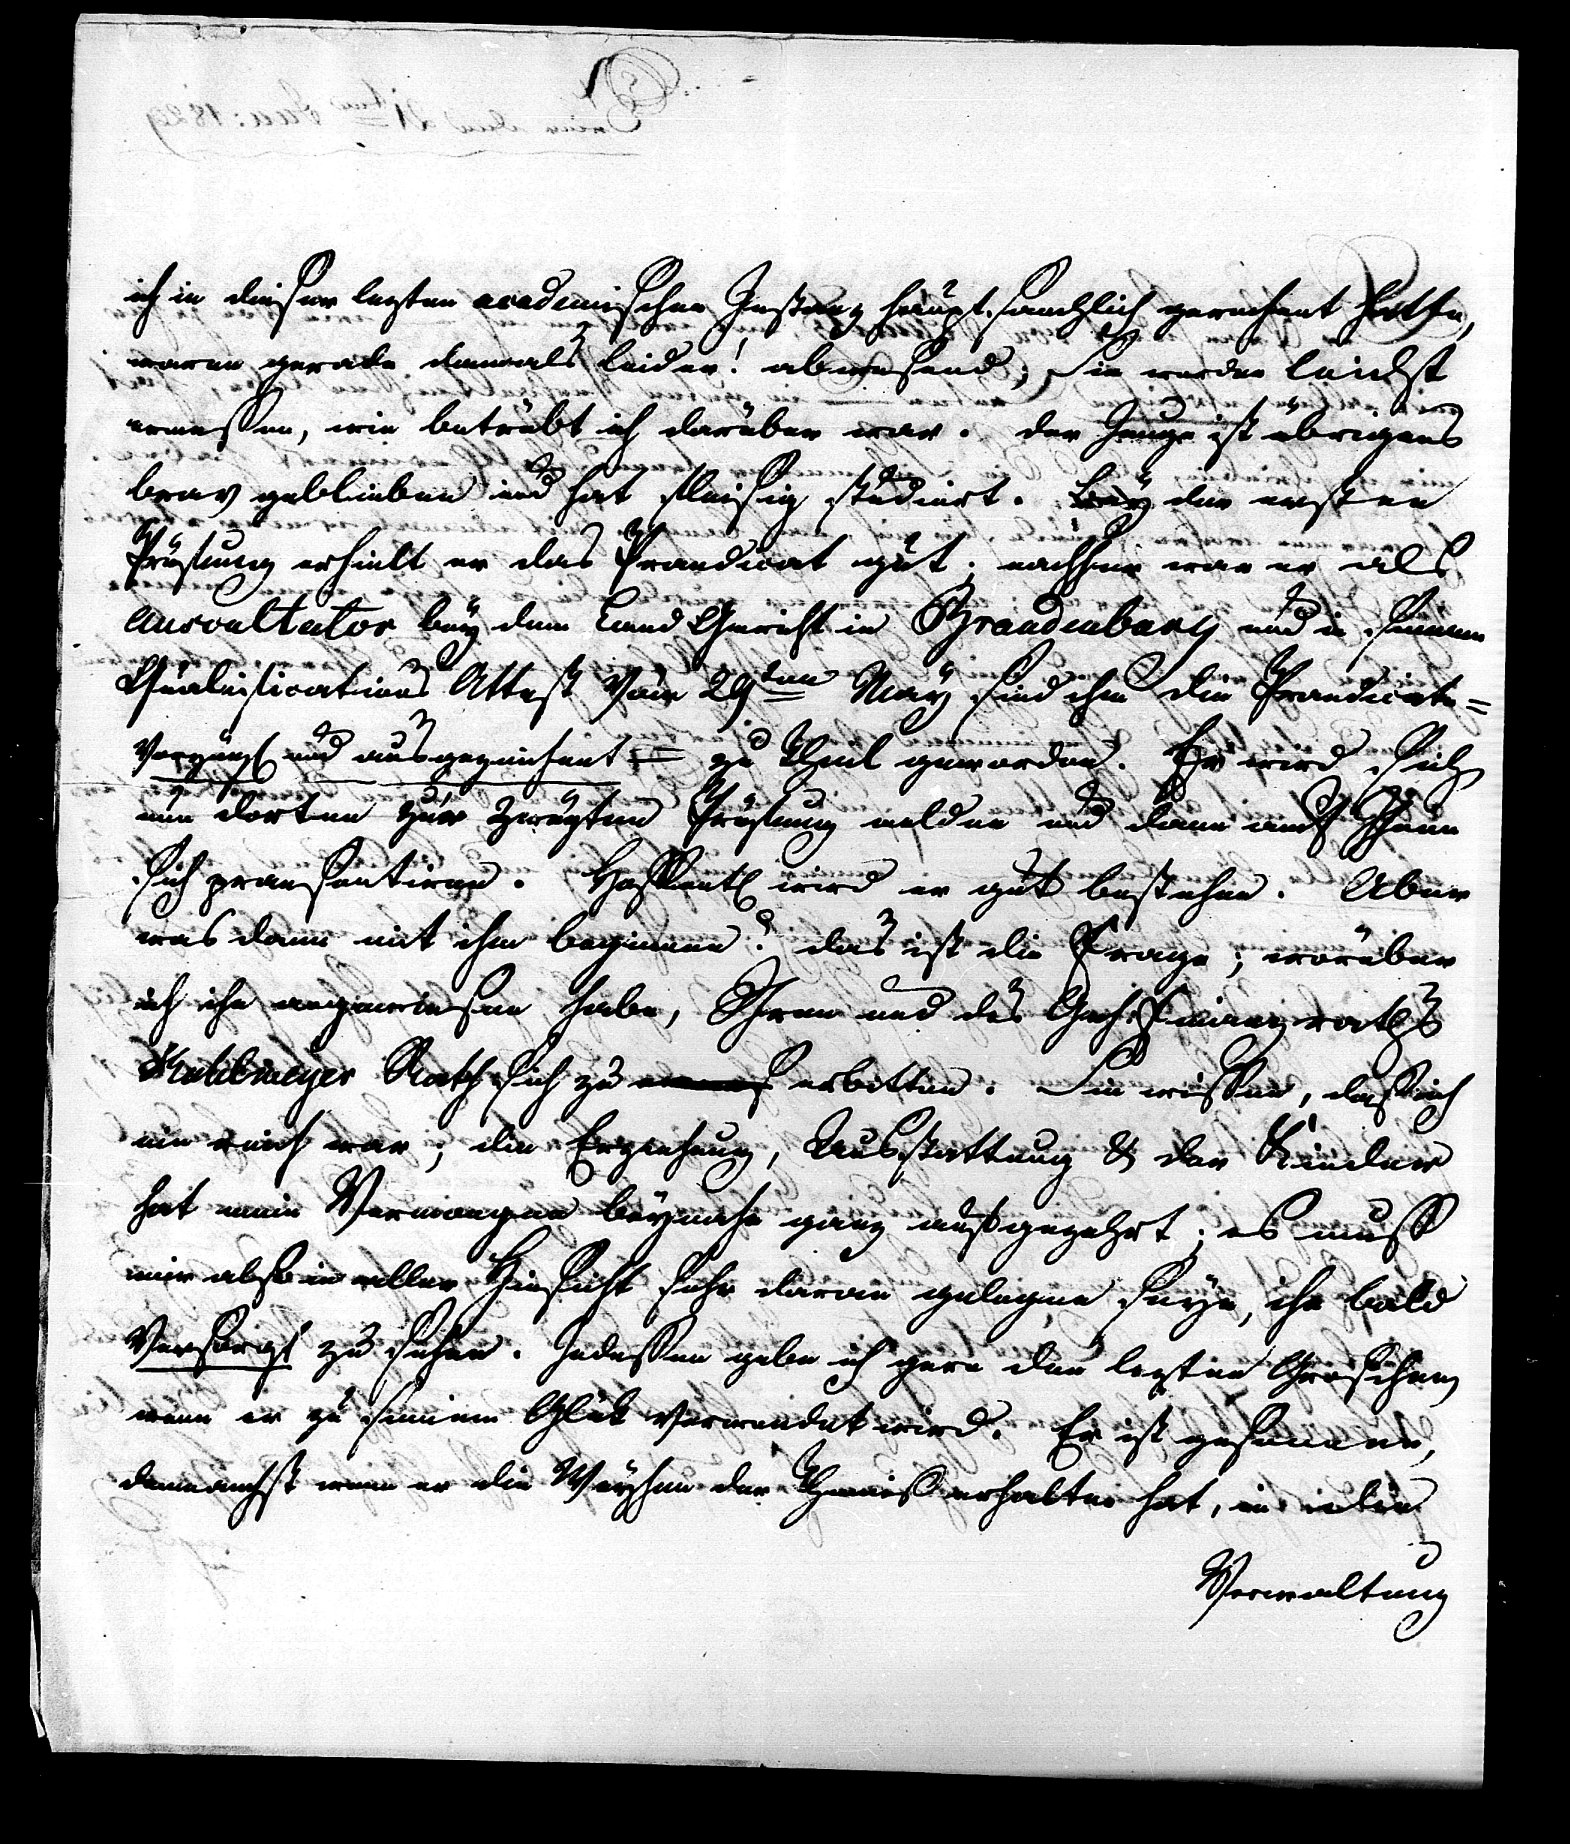 ich in dieser lezten academischen Instanz hauptsaechlich gerechnet hatte,
waren gerade damals leider! abwesend; Sie werden leichst
ermessen, wie betrübt ich darüber war. der Junge ist übrigens
brav geblieben und hat fleisig studiert. Bey der ersten
Prüfung erhielt er das Praedicat gut; nachher war er als
Auscultator bey dem Land Gericht in Brandenburg und in seinem
Qualifications Attest vom 29ten May sind ihm die Praedicate =
Vorzügl und ausgezeichnet = zu Theil geworden. Er wird sich
nun dorten zur zweyten Prüfung melden und dann auch Ihnen
sich praesentiren. Hoffentl wird er gut bestehen. Aber
was dann mit ihm beginnen? das ist die Frage; worüber
ich ihn angewiesen habe, Ihren und des Geh. Finanzraths
Kuhlmeyer Rath sich zu erbitten. Sie wissen, daß ich
nie reich war; die Erziehung, Ausstattung & der Kinder
hat mein Vermoegen beynahe ganz aufgezehrt; es muß
mir also in aller Hinsicht sehr daran gelegen seyn, ihn bald
Versorgt zu sehen. Indessen gebe ich gern den lezten Groschen
wenn er zu seinem Glük verwendet wird. Er ist gesonnen,
demnächst wenn er die Weyhen der Themis erhalten hat, in die
Verwaltung